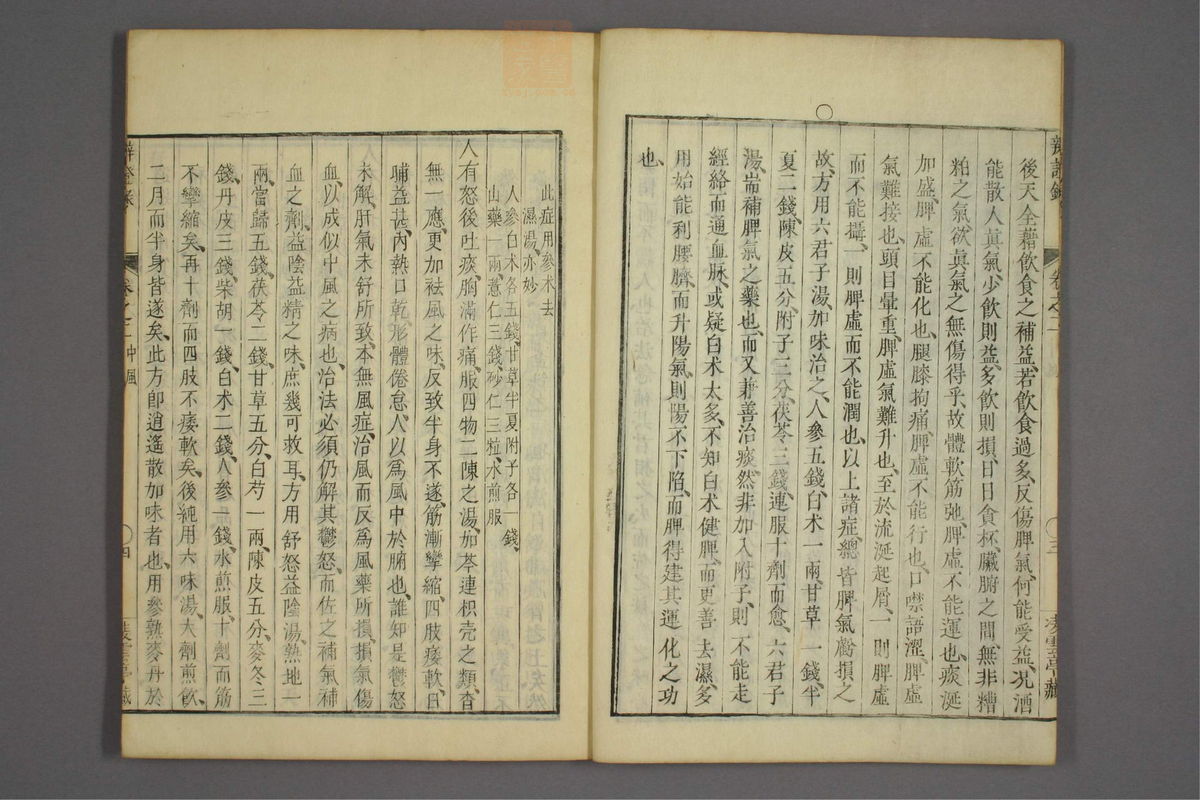 辨證錄 卷之二 三
後天全藉飲食之補益、若飲食過多、反傷脾氣、何能受益、况酒
能散人眞氣、少飲則益、多飲則損、日日貪杯、臟腑之間、無非糟
粕之氣、欲眞氣之無傷得乎、故體軟筋弛、脾虛不能運也、痰涎
加盛、脾虛不能化也、腿膝拘痛、脾虛不能行也、口噤語澀、脾虛
氣難接也、頭目暈重、脾虛氣難升也、至於流涎起屑、一則脾虛
而不能攝、一則脾虛而不能潤也、以上諸症、總皆脾氣虧損之
故、方用六君子湯、加味治之、人參五錢、白术一兩、甘草一錢、半
夏二錢、陳皮五分、附子三分、茯苓三錢、連服十劑而愈、六君子
湯、耑補脾氣之藥也、而又兼善治痰、然非加入附子、則不能走
經絡而通血脉、或疑白术太多、不知白术健脾、而更善去濕、多
用始能利腰臍、而升陽氣、則陽不下陷、而脾得建其運化之功
也、
此症用參术去
濕湯、亦妙
人參白术各五錢、甘草半夏附子各一錢、
山藥一兩、薏仁三錢、砂仁三粒、水煎服
人有怒後吐痰、胸滿作痛、服四物二陳之湯、加芩連枳壳之類、杳
無一應、更加袪風之味、反致半身不遂、筋漸攣縮、四肢痿軟、日
晡益甚、內熱口乾、形體倦怠、人以爲風中於腑也、誰知是鬱怒
未解、肝氣未舒所致、本無風症、治風而反爲風藥所損、損氣傷
血、以成似中風之病也、治法必須仍解其鬱怒、而佐之補氣補
血之劑、益陰益精之味、庶幾可救耳、方用舒怒益陰湯、熟地一
兩、當歸五錢、茯苓二錢、甘草五分、白芍一兩、陳皮五分、麥冬三
錢、丹皮三錢、柴胡一錢、白术二錢、人參一錢、水煎服、十劑而筋
不攣縮矣、再十劑而四肢不痿軟矣、後純用六味湯、大劑煎飲、
二月而半身皆遂矣、此方即逍遙散加味者也、用參熟麥丹於
辨證錄 卷之二 中風 四